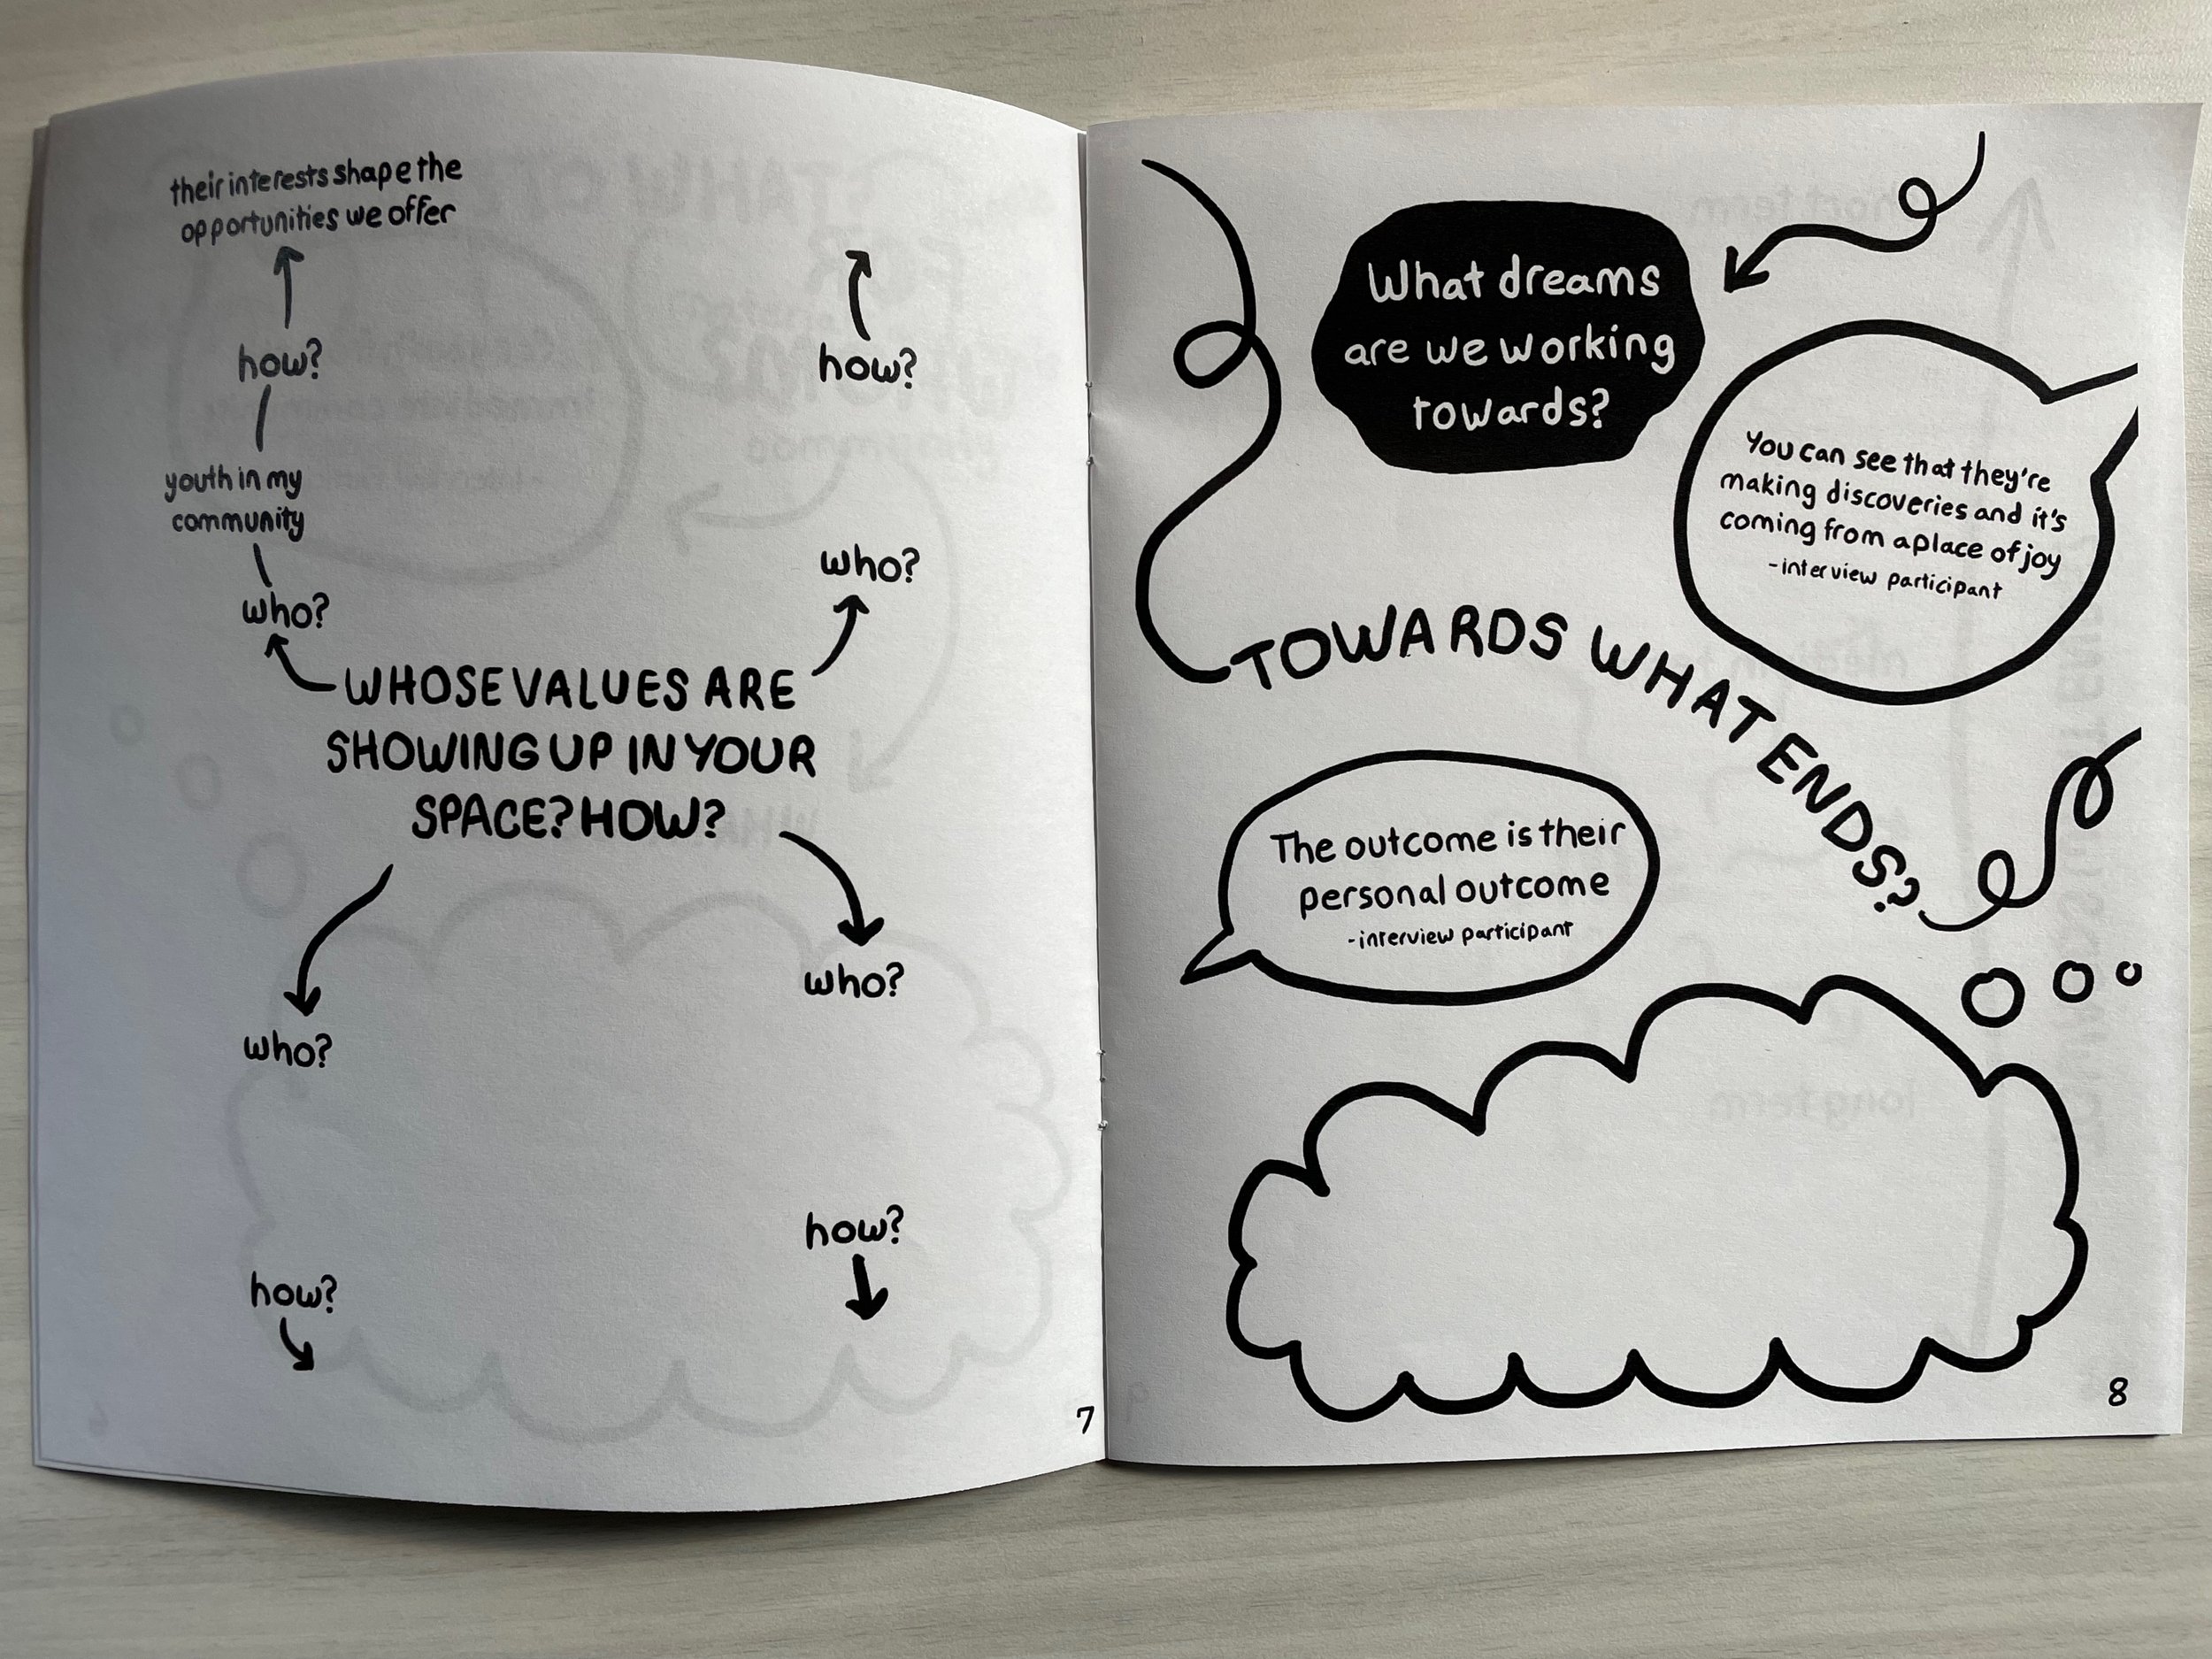 their interests shape the
opportunities we offer
how?
youth in my
community
who?
how?
who?
WHOSE VALUES ARE
SHOWING UP IN YOUR
SPACE? HOW?
who?
how?
who?
how?
7
What dreams
are we working
towards?
You can see that they're
making discoveries and it's
coming from a place of joy
-interview participant
TOWARDS WHAT ENDS?
The outcome is their
personal outcome
-interview participant
8